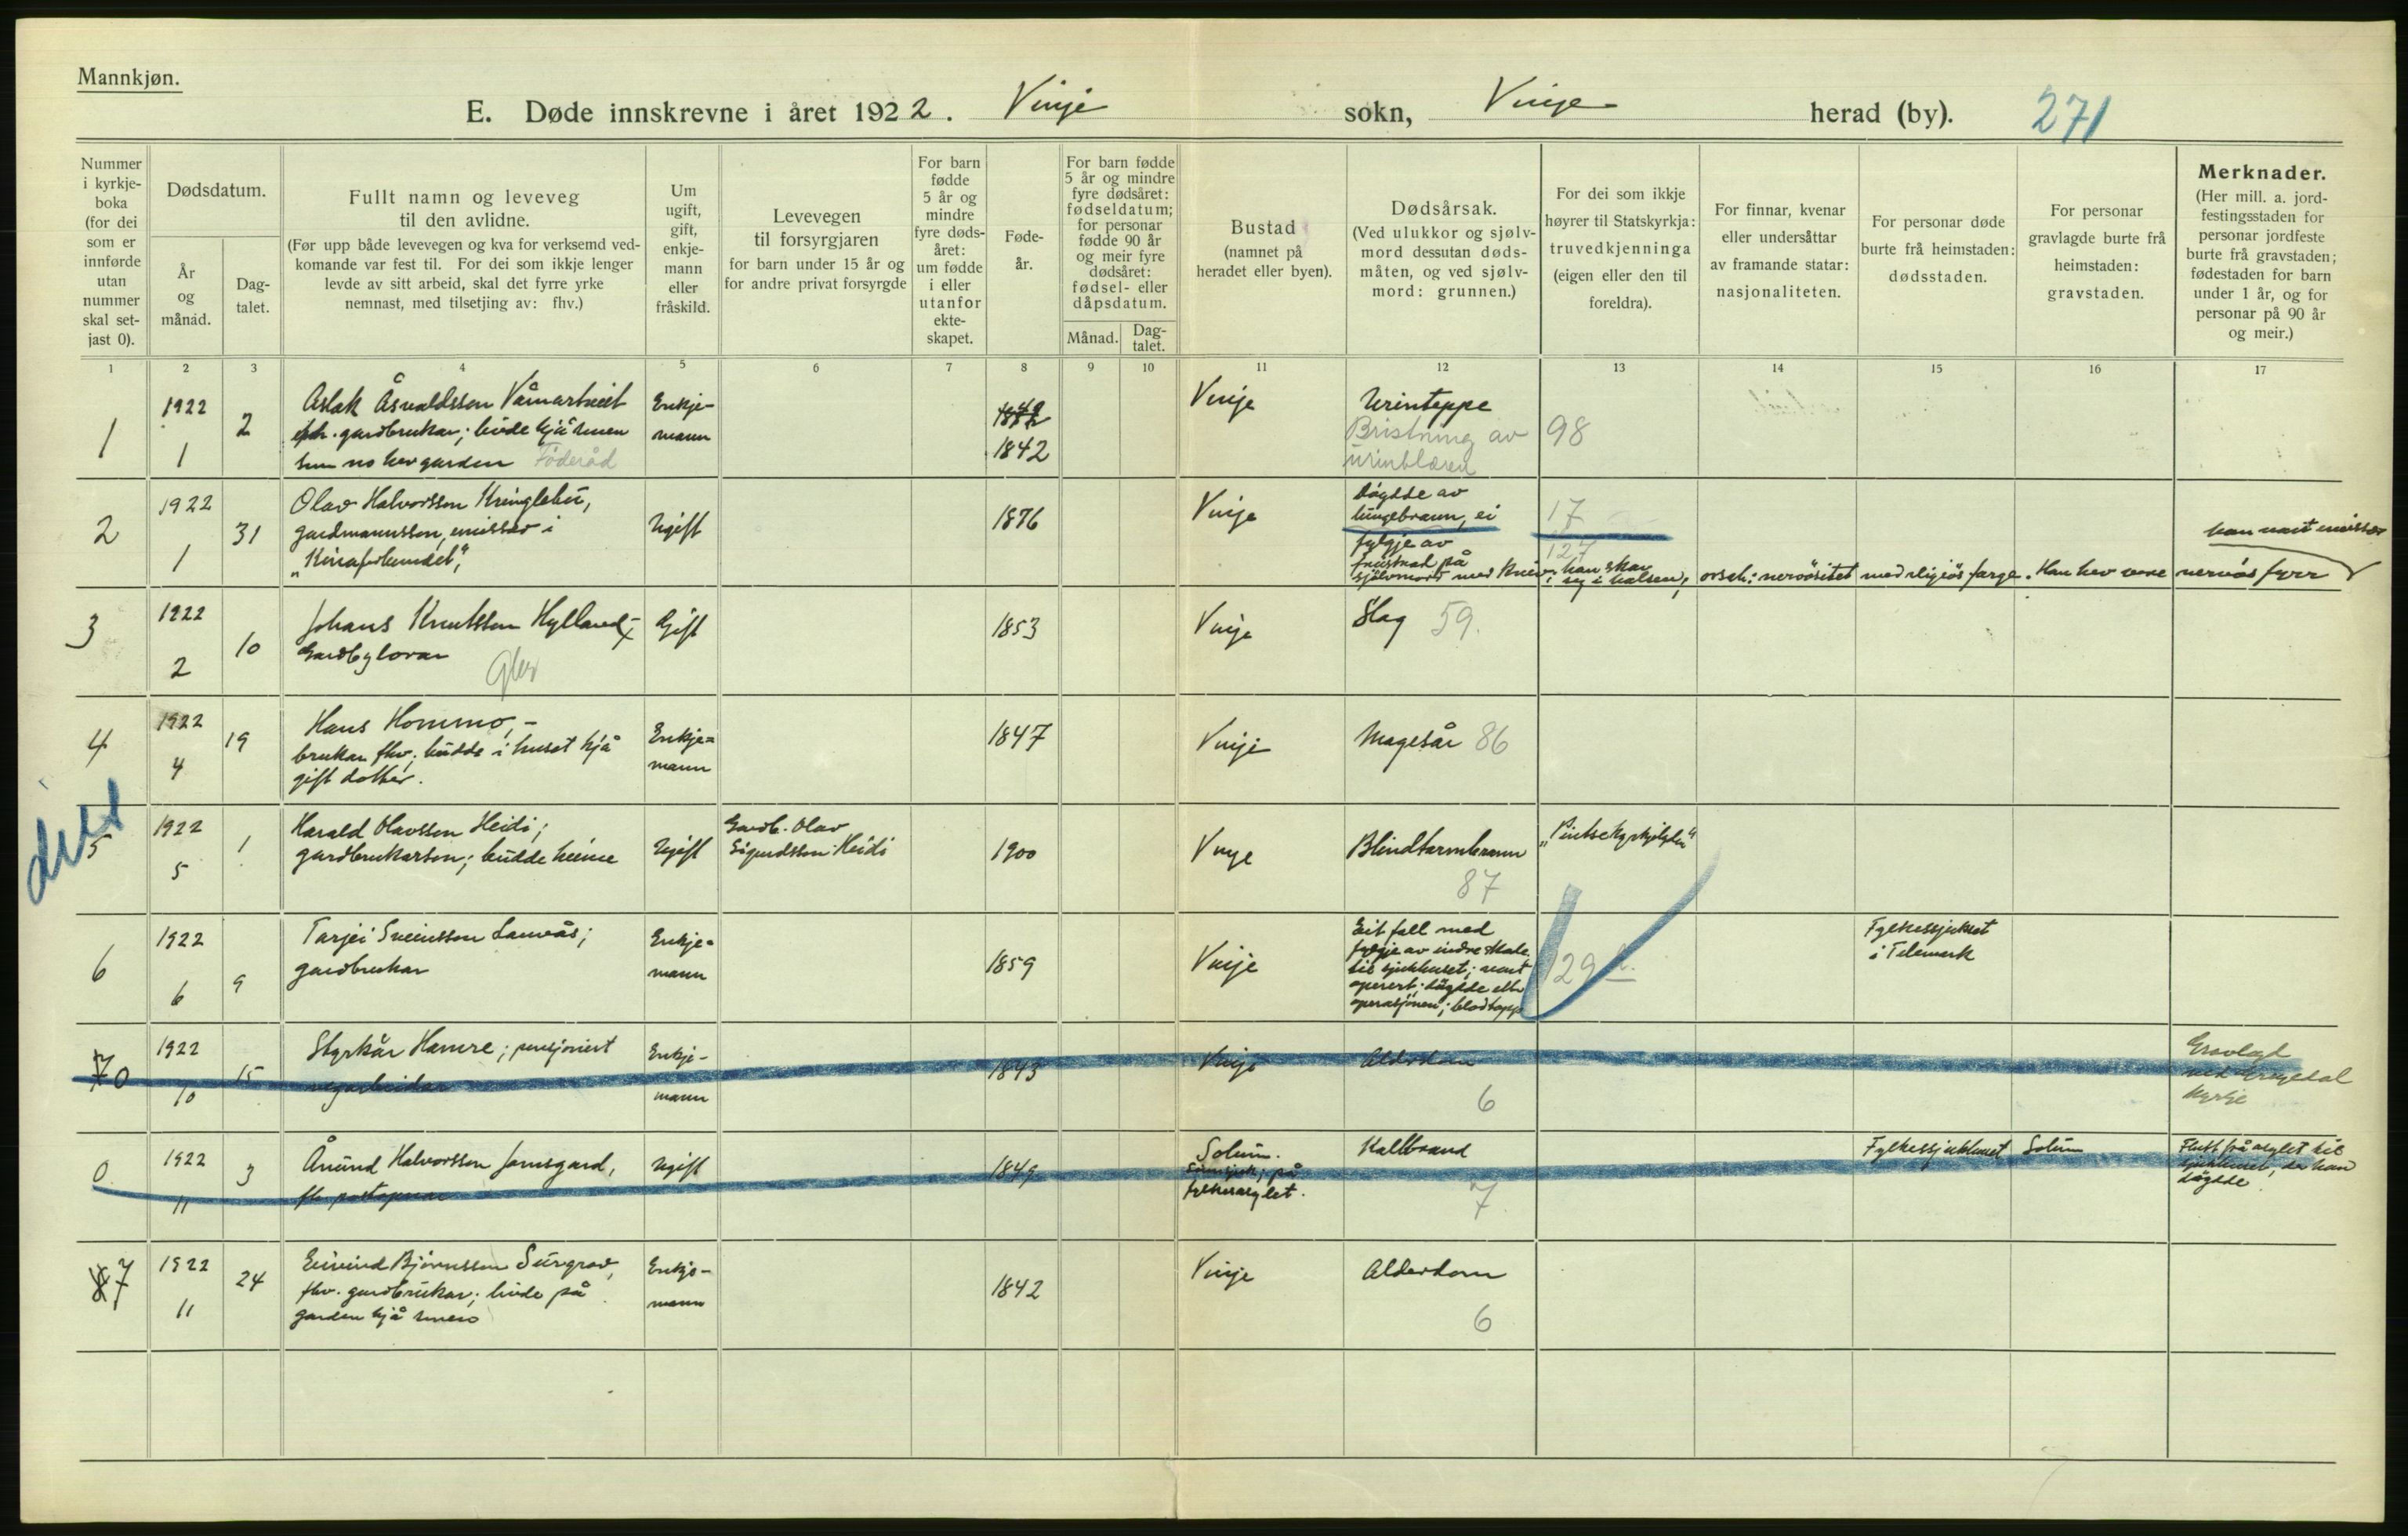 Mannkjøn.
E. Døde innskrevne i året 1922. Vinje sokn, Vinje herad (by). 271
Nummer
i kyrkje-
boka
(for dei
som er
innførde
utan
nummer
skal set-
jast 0).
Dødsdatum.
År
og
månad.
Dag-
talet.
Fullt namn og leveveg
til den avlidne.
(Før upp både levevegen og kva for verksemd ved-
komande var fest til. For dei som ikkje lenger
levde av sitt arbeid, skal det fyrre yrke
nemnast, med tilsetjing av: fhv.)
Um
ugift,
gift,
enkje-
mann
eller
fråskild.
Levevegen
til forsyrgjaren
for barn under 15 år og
for andre privat forsyrgde
For barn
fødde
5 år og
mindre
fyre døds-
året:
um fødde
i eller
utanfor
ekte-
skapet.
Føde-
år.
For barn fødde
5 år og mindre
fyre dødsåret:
fødseldatum;
for personar
fødde 90 år
og meir fyre
dødsåret:
fødsel- eller
dåpsdatum.
Månad.
Dag-
talet.
Bustad
(namnet på
heradet eller byen).
Dødsårsak.
(Ved ulukkor og sjølv-
mord dessutan døds-
måten, og ved sjølv-
mord: grunnen.)
For dei som ikkje
høyrer til Statskyrkja:
truvedkjenninga
(eigen eller den til
foreldra).
For finnar, kvenar
eller undersåttar
av framande statar:
nasjonaliteten.
For personar døde
burte frå heimstaden:
dødsstaden.
For personar
gravlagde burte frå
heimstaden:
gravstaden.
Merknader.
(Her mill. a. jord-
festingsstaden for
personar jordfeste
burte frå gravstaden;
fødestaden for barn
under 1 år, og for
personar på 90 år
og meir.)
1 2 3 4 5 6 7 8 9 10 11 12 13 14 15 16 17
1 1922 1 2
Aslak Åsvaldsson Våmartveit
gardbrukar; budde hjå sonen
som no hev garden Föderåd
Enkje-
mann
1842
Vinje
Urinteppe
Bristning av
urinblæren
98
2 1922 1 31
Olav Halvorsson Kringlebu,
gardmannsson, emissær i
"Kinaforbundet",
Ugift
1876
Vinje
Döydde av
lungebraun, ei
fylgje av
freistnad på
sjölvmord med kniv; han skar
seg i halsen; orsak: nervösitet med religiös farge. Han hev vore nervös fyrr
17
127
han vart emissær
3 1922 2 10
Johans Knutsson Hylland,
Gardbylovar
Gift
1853
Vinje
Slag 59.
4 1922 4 19
Hans Hommo,-
brukar fhv; budde i huset hjå
gift dotter.
Enkje-
mann
1847
Vinje
Magesår 86
5 1922 5 1
Harald Olavsson Heidi;
gardbrukarson; budde heime
Ugift
Gardb. Olav
Sigurdsson Heidi
1900
Vinje
Blindtarmbraun
87
6 1922 6 9
Tarjei Sveinsson Lauvås;
gardbrukar
Enkje-
mann
1859
Vinje
Eit fall med
fylgje av indre skade
til sjukhuset; vart
operert; döydde etter
operasjonen; blodtapp
129
Fylkessjukhuset
i Telemark
7 0 1922 10 15
Styrkår Hamre; pensjonert
vegarbeidar
Enkje-
mann
1843
Vinje
Alderdom
6
Gravlagd
ved Grungedal
kyrkje
0 1922 11 3
Ånund Halvorsson Jamsgard,
fhv postopnar
Ugift
1849
Solum.
Sinnsjuk; på
fylkesasylet.
Kallbrand
7
Fylkessjukhuset
Solum
Flutt frå asylet til
sjukhuset, der han
döydde
8 7 1922 11 24
Eivind Björnsson Surgrav,
fhv. gardbrukar; budde på
garden hjå sonen
Enkje-
mann
1842
Vinje
Alderdom
6